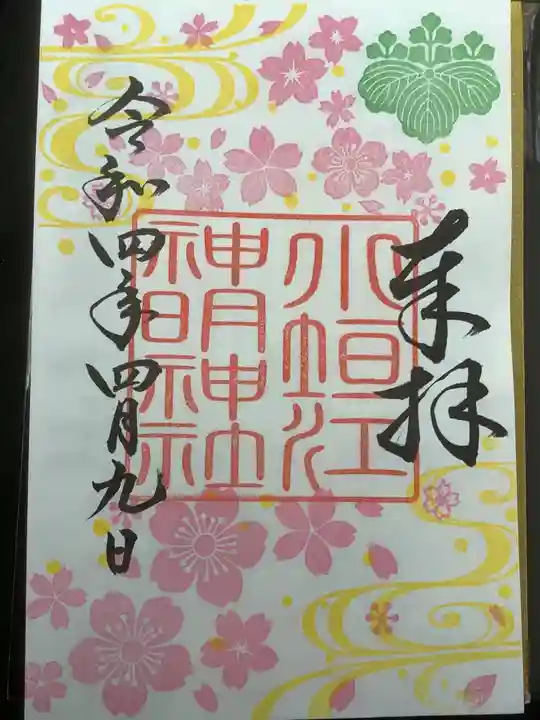 奉拝
小垣江
神明神社
令和四年四月九日